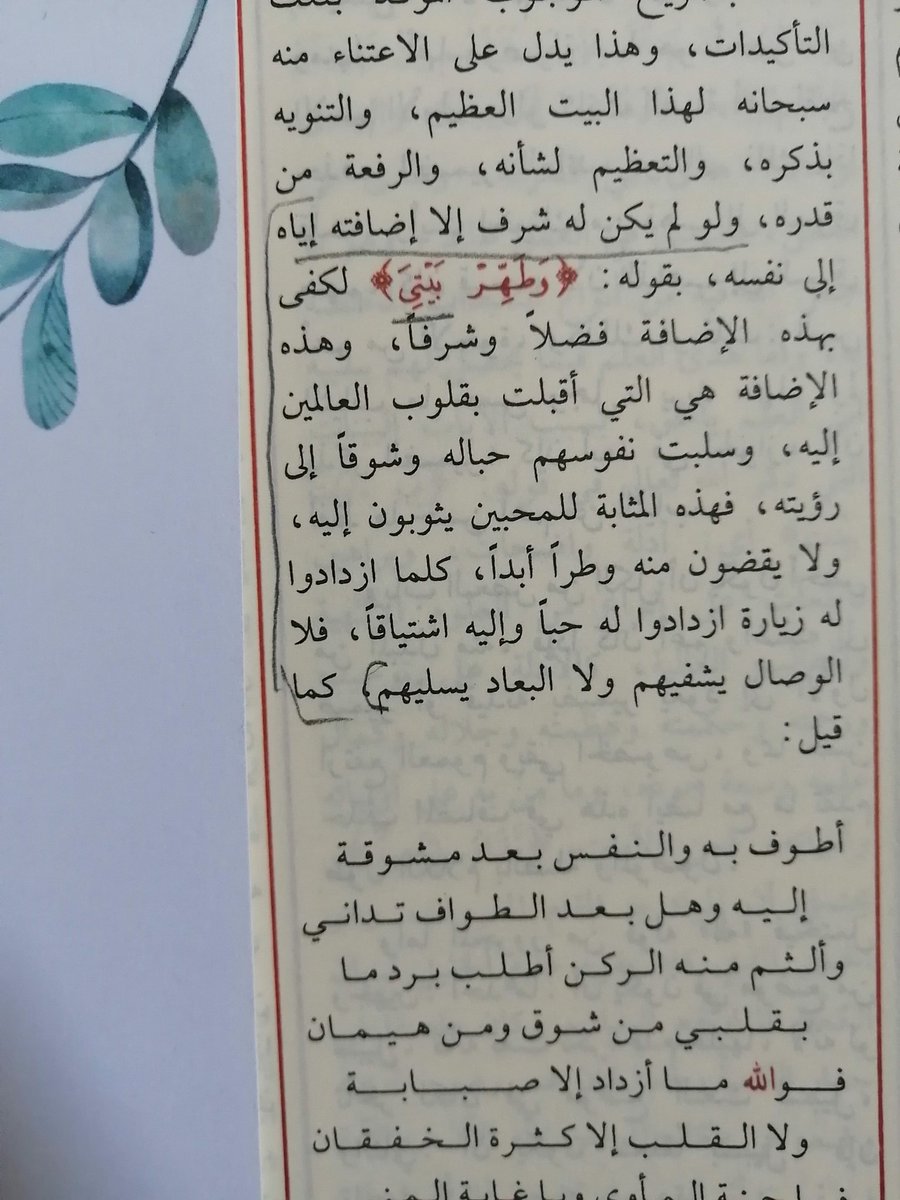 التأكيدات، وهذا يدل على الاعتناء منه
سبحانه لهذا البيت العظيم، والتنويه
بذكره، والتعظيم لشأنه، والرفعة من
قدره، ولو لم يكن له شرف إلا إضافته إياه
إلى نفسه، بقوله: ﴿وَطَهِّرْ بَيْتِيَ﴾ لكفى
بهذه الإضافة فضلاً وشرفاً، وهذه
الإضافة هي التي أقبلت بقلوب العالمين
إليه، وسلبت نفوسهم حباله وشوقاً إلى
رؤيته، فهذه المثابة للمحبين يثوبون إليه،
ولا يقضون منه وطراً أبداً، كلما ازدادوا
له زيارة ازدادوا له حباً وإليه اشتياقاً، فلا
الوصال يشفيهم ولا البعاد يسليهم، كما
قيل:
أطوف به والنفس بعد مشوقة
إليه وهل بعد الطواف تداني
وألثم منه الركن أطلب برد ما
بقلبي من شوق ومن هيمان
فوالله ما أزداد إلا صبابة
ولا القلب إلا كثرة الخفقان